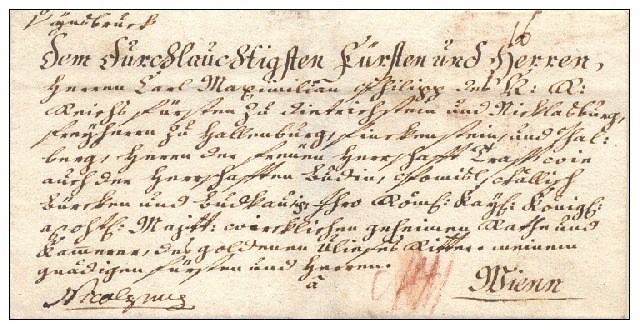 Dem Durchlauchtigsten Fürsten und Herren,
Herren Carl Maximilian Philipp des H: R:
Reichs Fürsten zu Dietrichstein und Nicklasburg,
Freyherrn zu Hallenburg, Finckenstein, und Thal=
berg, Herren der freyen Herrschafft Trasp, wie
auch der Herrschafften Budin,
und Budkau, Ihro Röm: Kays: Königl:
Majtt: wircklichen geheimen Rathe und
Kammerer, des goldenen Vließes Ritter. meinem
gnädigen Fürsten und Herren.
à
Wienn